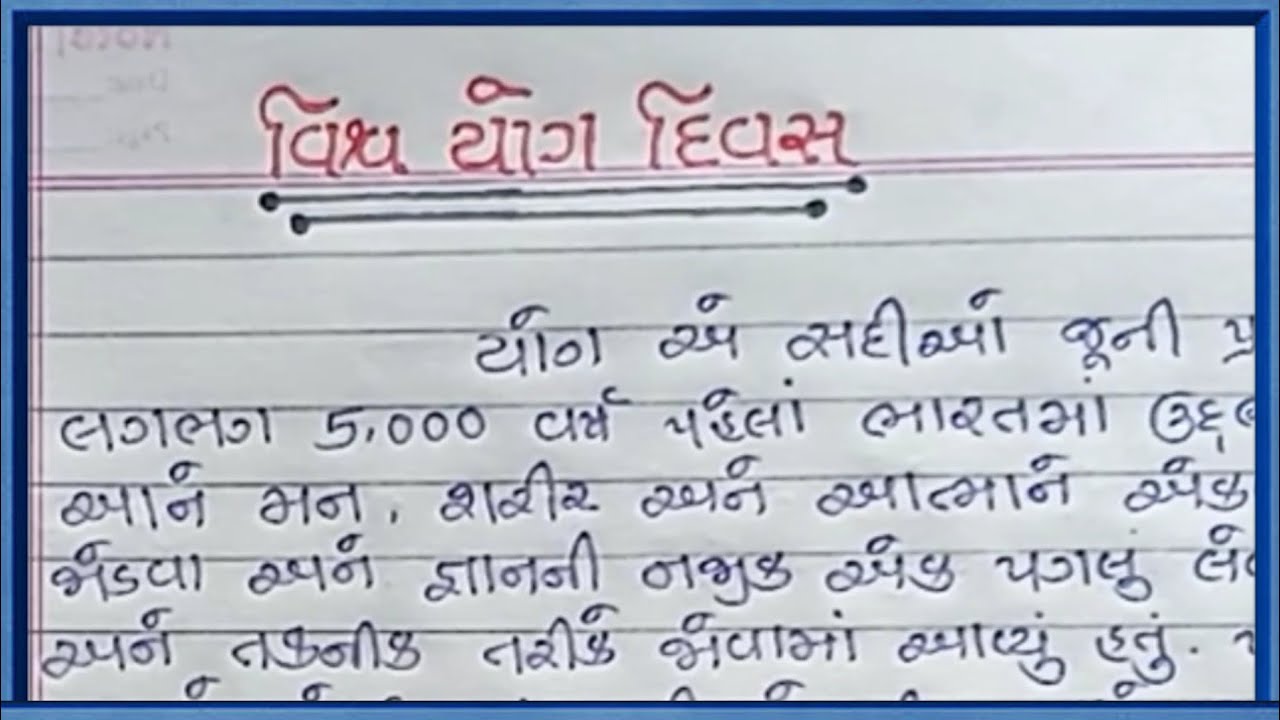 વિશ્વ યોગ દિવસ
યોગ એ સદીઓ જૂની
લગભગ 5,000 વર્ષ પહેલાં ભારતમાં
આને મન, શરીર અને આત્માને એક
જોડવા અને જ્ઞાનની નજીક એક પગલું
અને તકનીક તરીકે જોવામાં આવ્યું હતું.